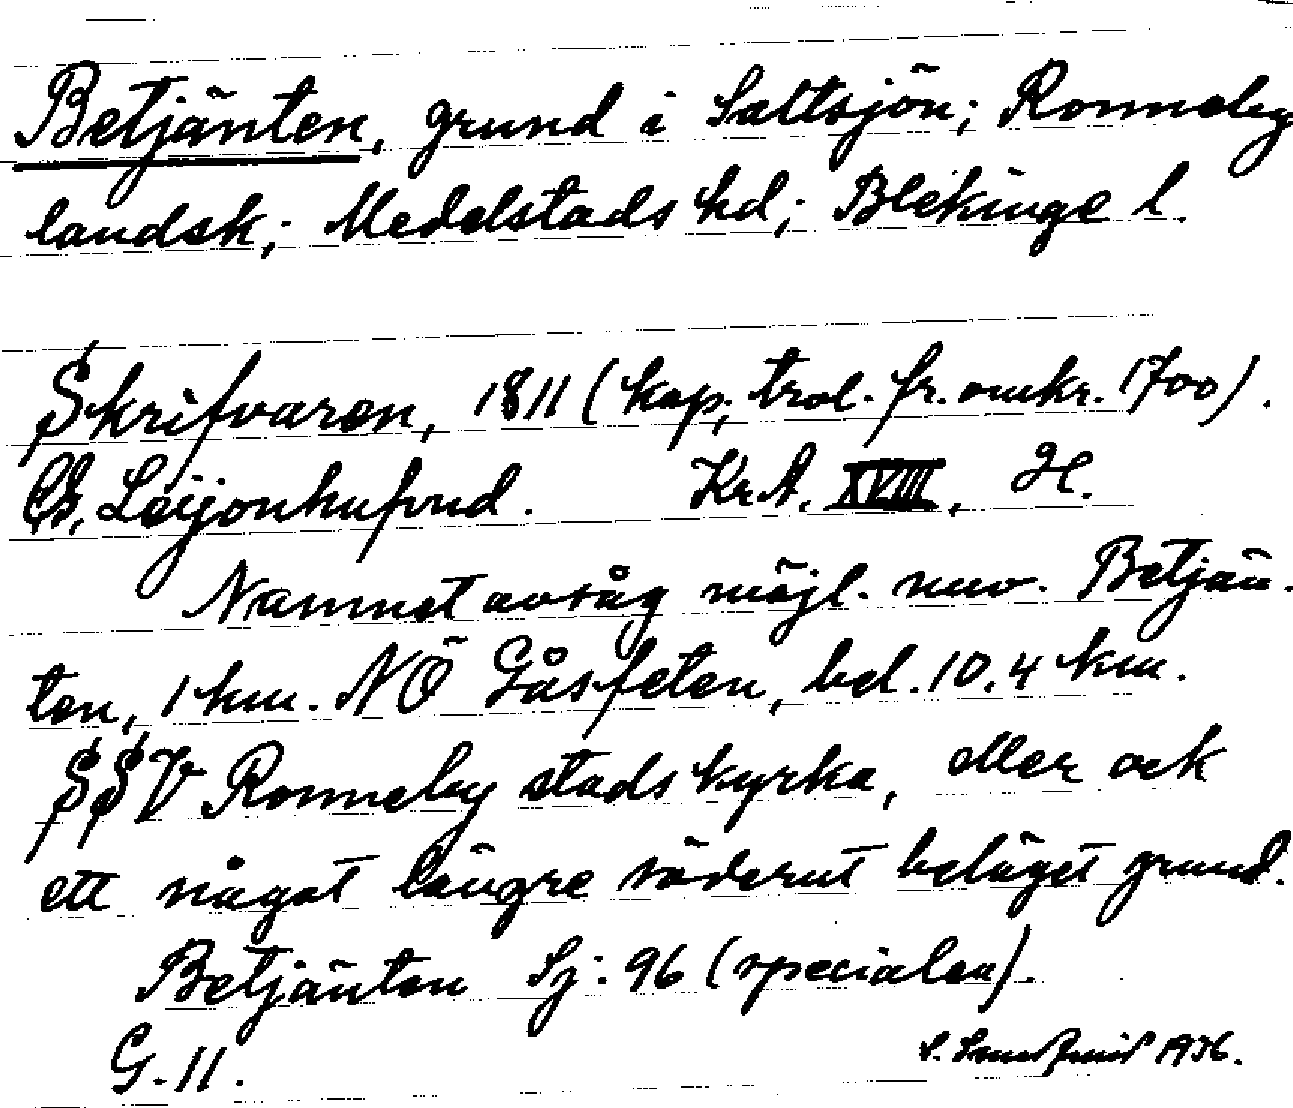 Betjänten, grund i Saltsjön; Ronneby
landsk; Medelstads hd; Blekinge l.
Skrifvaren, 1811 (kop, trol. fr. omkr. 1700).
Ch. Leijonhufvud. Kr.A. XVIII, H.
Namnet avsåg möjl. nuv. Betjän-
ten, 1 km. NÖ Gåsfeten, bel. 10.4 km.
SSV Ronneby stadskyrka, eller ock
ett något längre söderut beläget grund.
Betjänten Sj. 96 (specialen).
G. 11.
1936.